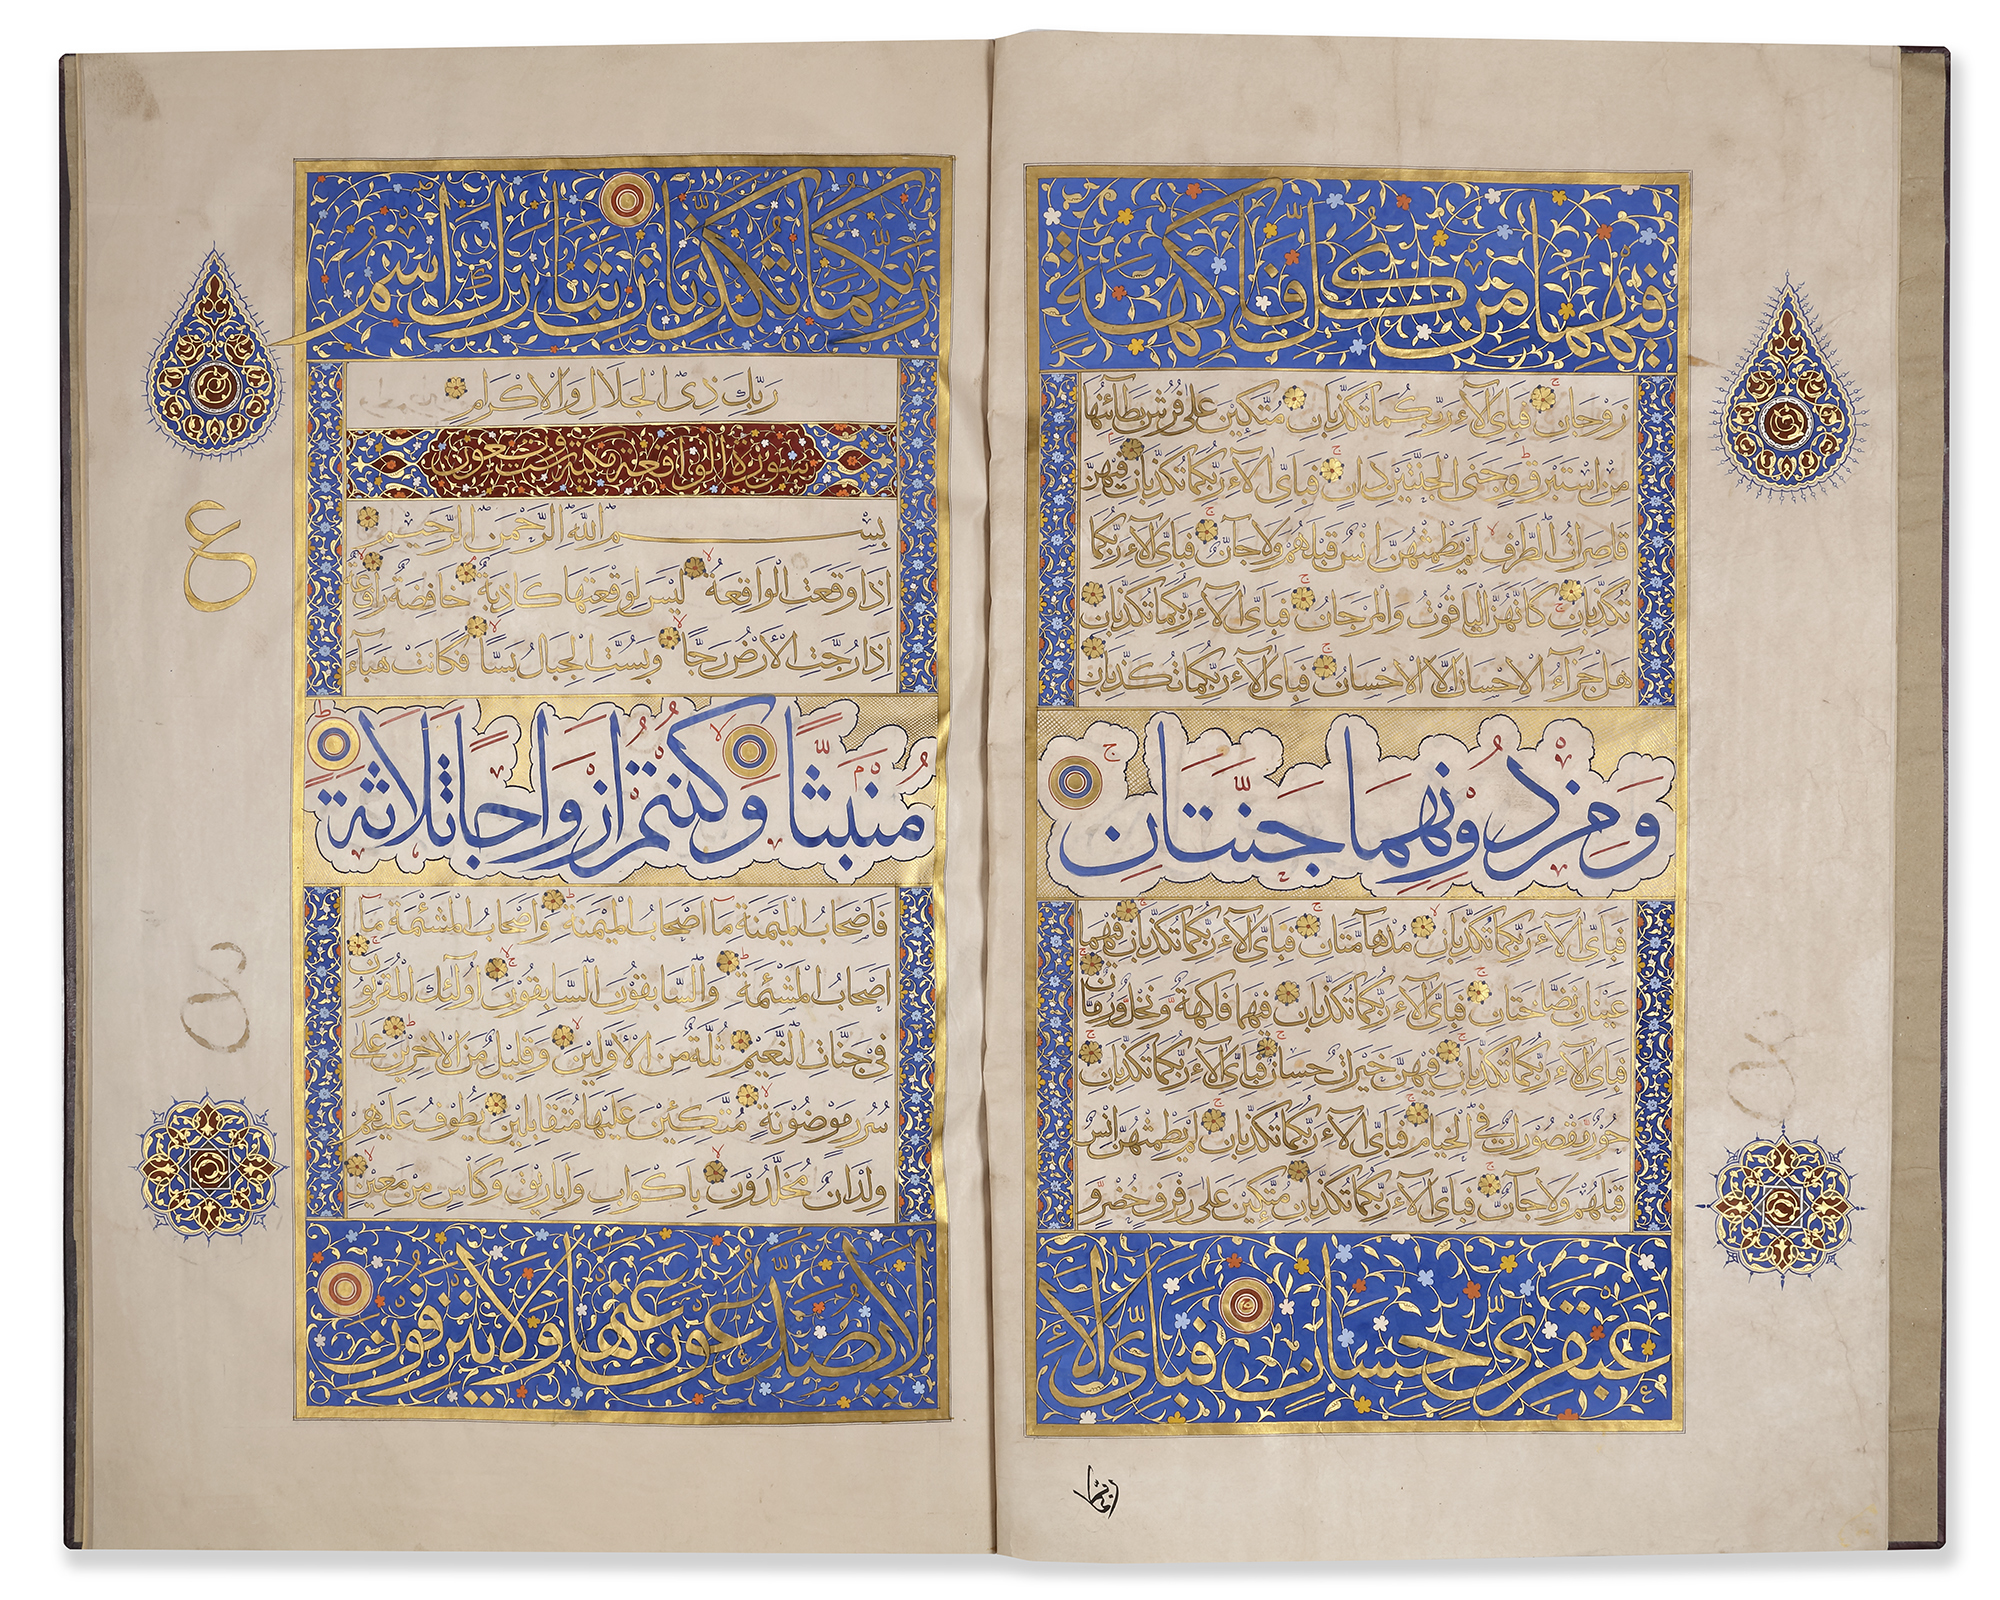 فيهما من كل فاكهة
زوجان فبای الاء ربكما تكذبان متكئين على فرش بطائنها
من استبرق وجنى الجنتين دان فبای الاء ربكما تكذبان فيهن
قاصرات الطرف لم يطمثهن انس قبلهم ولا جان فبای الاء ربكما
تكذبان كانهن الياقوت والمرجان فبای الاء ربكما تكذبان
هل جزآء الاحسان الا الاحسان فبای الاء ربكما تكذبان
ومن دونهما جنتان
فبای الاء ربكما تكذبان مدهآمتان فبای الاء ربكما تكذبان فيهما
عينان نضاختان فبای الاء ربكما تكذبان فيهما فاكهة ونخل ورمان
فبای الاء ربكما تكذبان فيهن خيرات حسان فبای الاء ربكما تكذبان
حور مقصورات فی الخيام فبای الاء ربكما تكذبان لم يطمثهن انس
قبلهم ولا جآن فبای الاء ربكما تكذبان متكئين على رفرف خضر و
عبقری حسان فبای الاء
ربكما تكذبان تبارك اسم
ربك ذی الجلال والاكرام
سورة الواقعة مكية وست وتسعون
بسم الله الرحمن الرحيم
اذا وقعت الواقعة ليس لوقعتها كاذبة خافضة رافعة
اذا رجت الارض رجا وبست الجبال بسا فكانت هباء
منبثا وكنتم ازواجا ثلاثة
فاصحاب الميمنة مآ اصحاب الميمنة واصحاب المشئمة مآ
اصحاب المشئمة والسابقون السابقون اولئك المقربون
فی جنات النعيم ثلة من الاولين وقليل من الاخرين على
سرر موضونة متكئين عليها متقابلين يطوف عليهم
ولدان مخلدون باكواب واباريق وكأس من معين
لا يصدعون عنها ولا ينزفون
ع